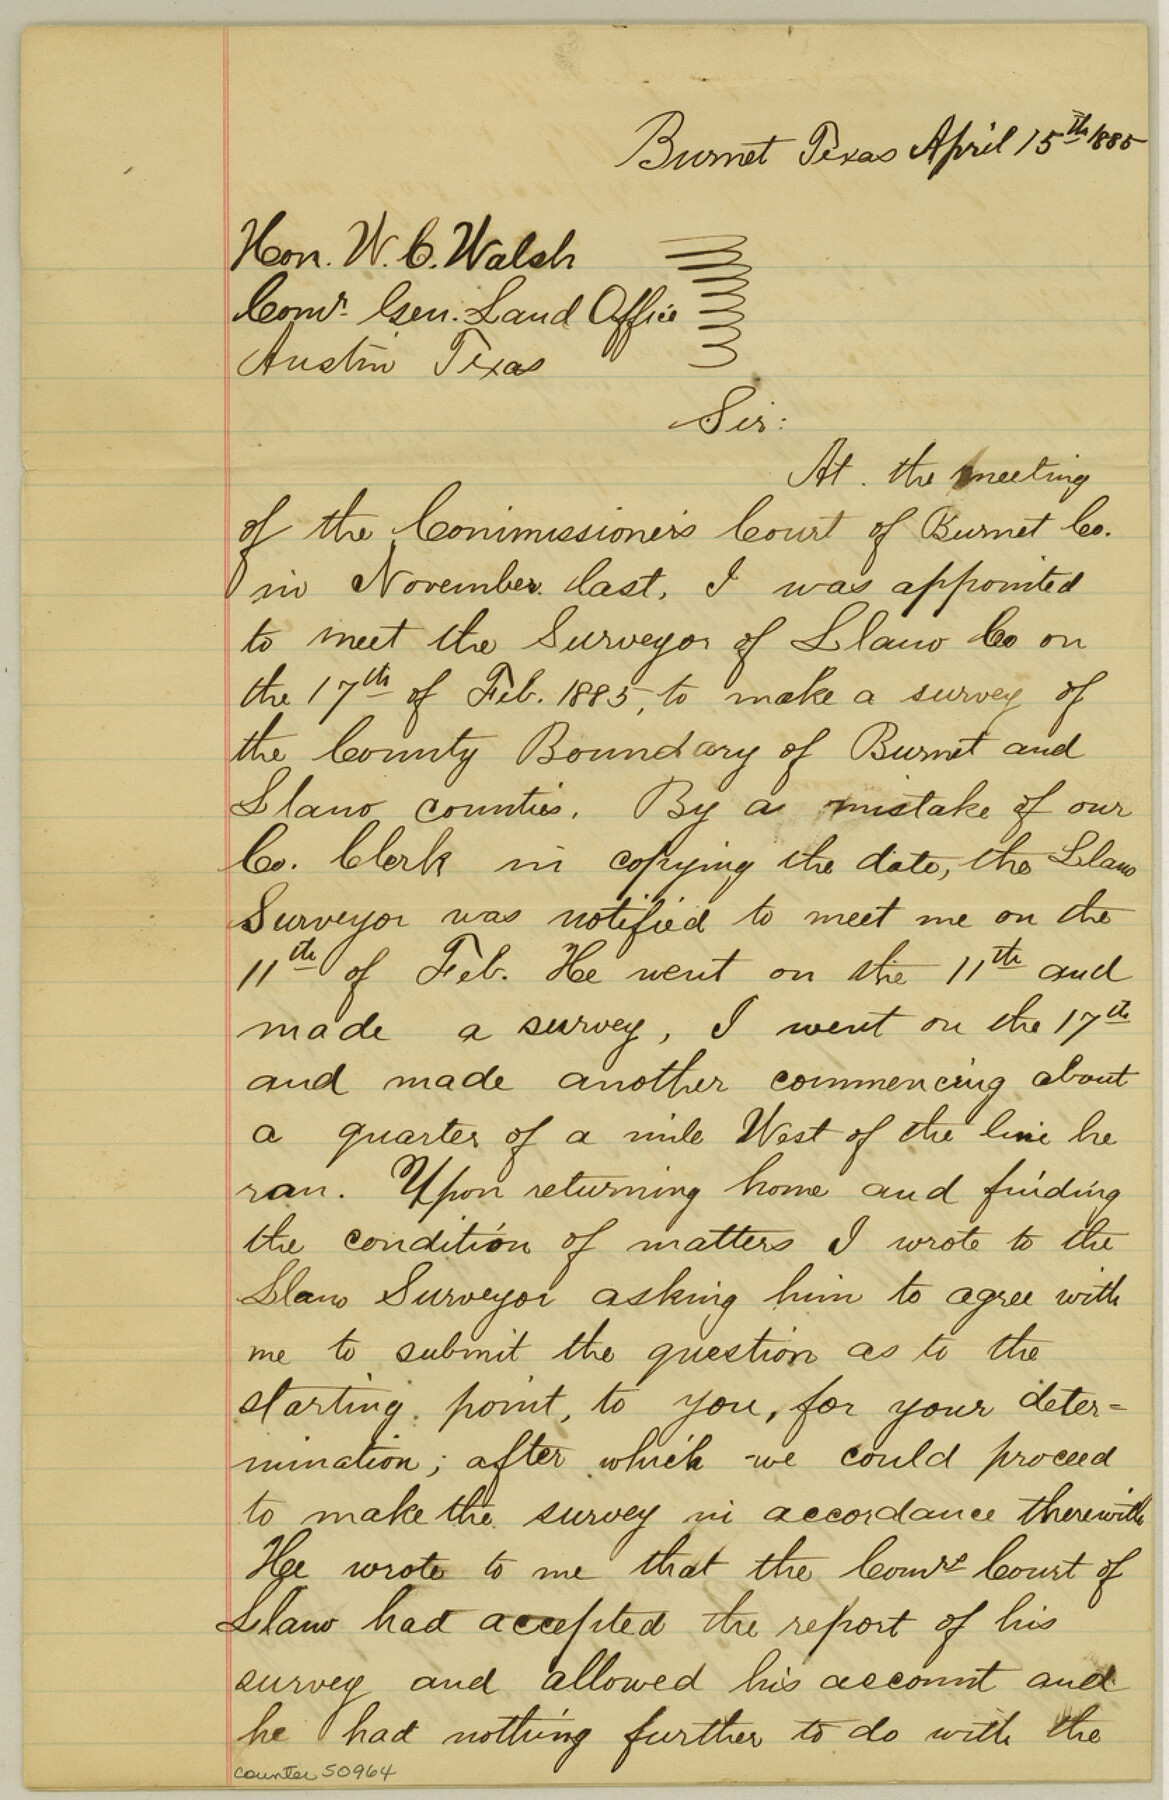 Burnet Texas April 15th 1885
Hon. W. C. Walsh
Comr. Gen. Land Office
Austin Texas
Sir:
At. the meeting
of the Commissioner's Court of Burnet Co.
in November last, I was appointed
to meet the Surveyor of Llano Co on
the 17th of Feb. 1885, to make a survey of
the County Boundary of Burnet and
Llano counties. By a mistake of our
Co. Clerk in copying the date, the Llano
Surveyor was notified to meet me on the
11th of Feb. He went on the 11th and
made a survey, I went on the 17th
and made another commencing about
a quarter of a mile West of the line he
ran. Upon returning home and finding
the condition of matters I wrote to the
Llano Surveyor asking him to agree with
me to submit the question as to the
starting point, to you, for your deter=
mination; after which we could proceed
to make the survey in accordance therewith
He wrote to me that the Comrs Court of
Llano had accepted the report of his
survey and allowed his account and
he had nothing further to do with the
counter 50964